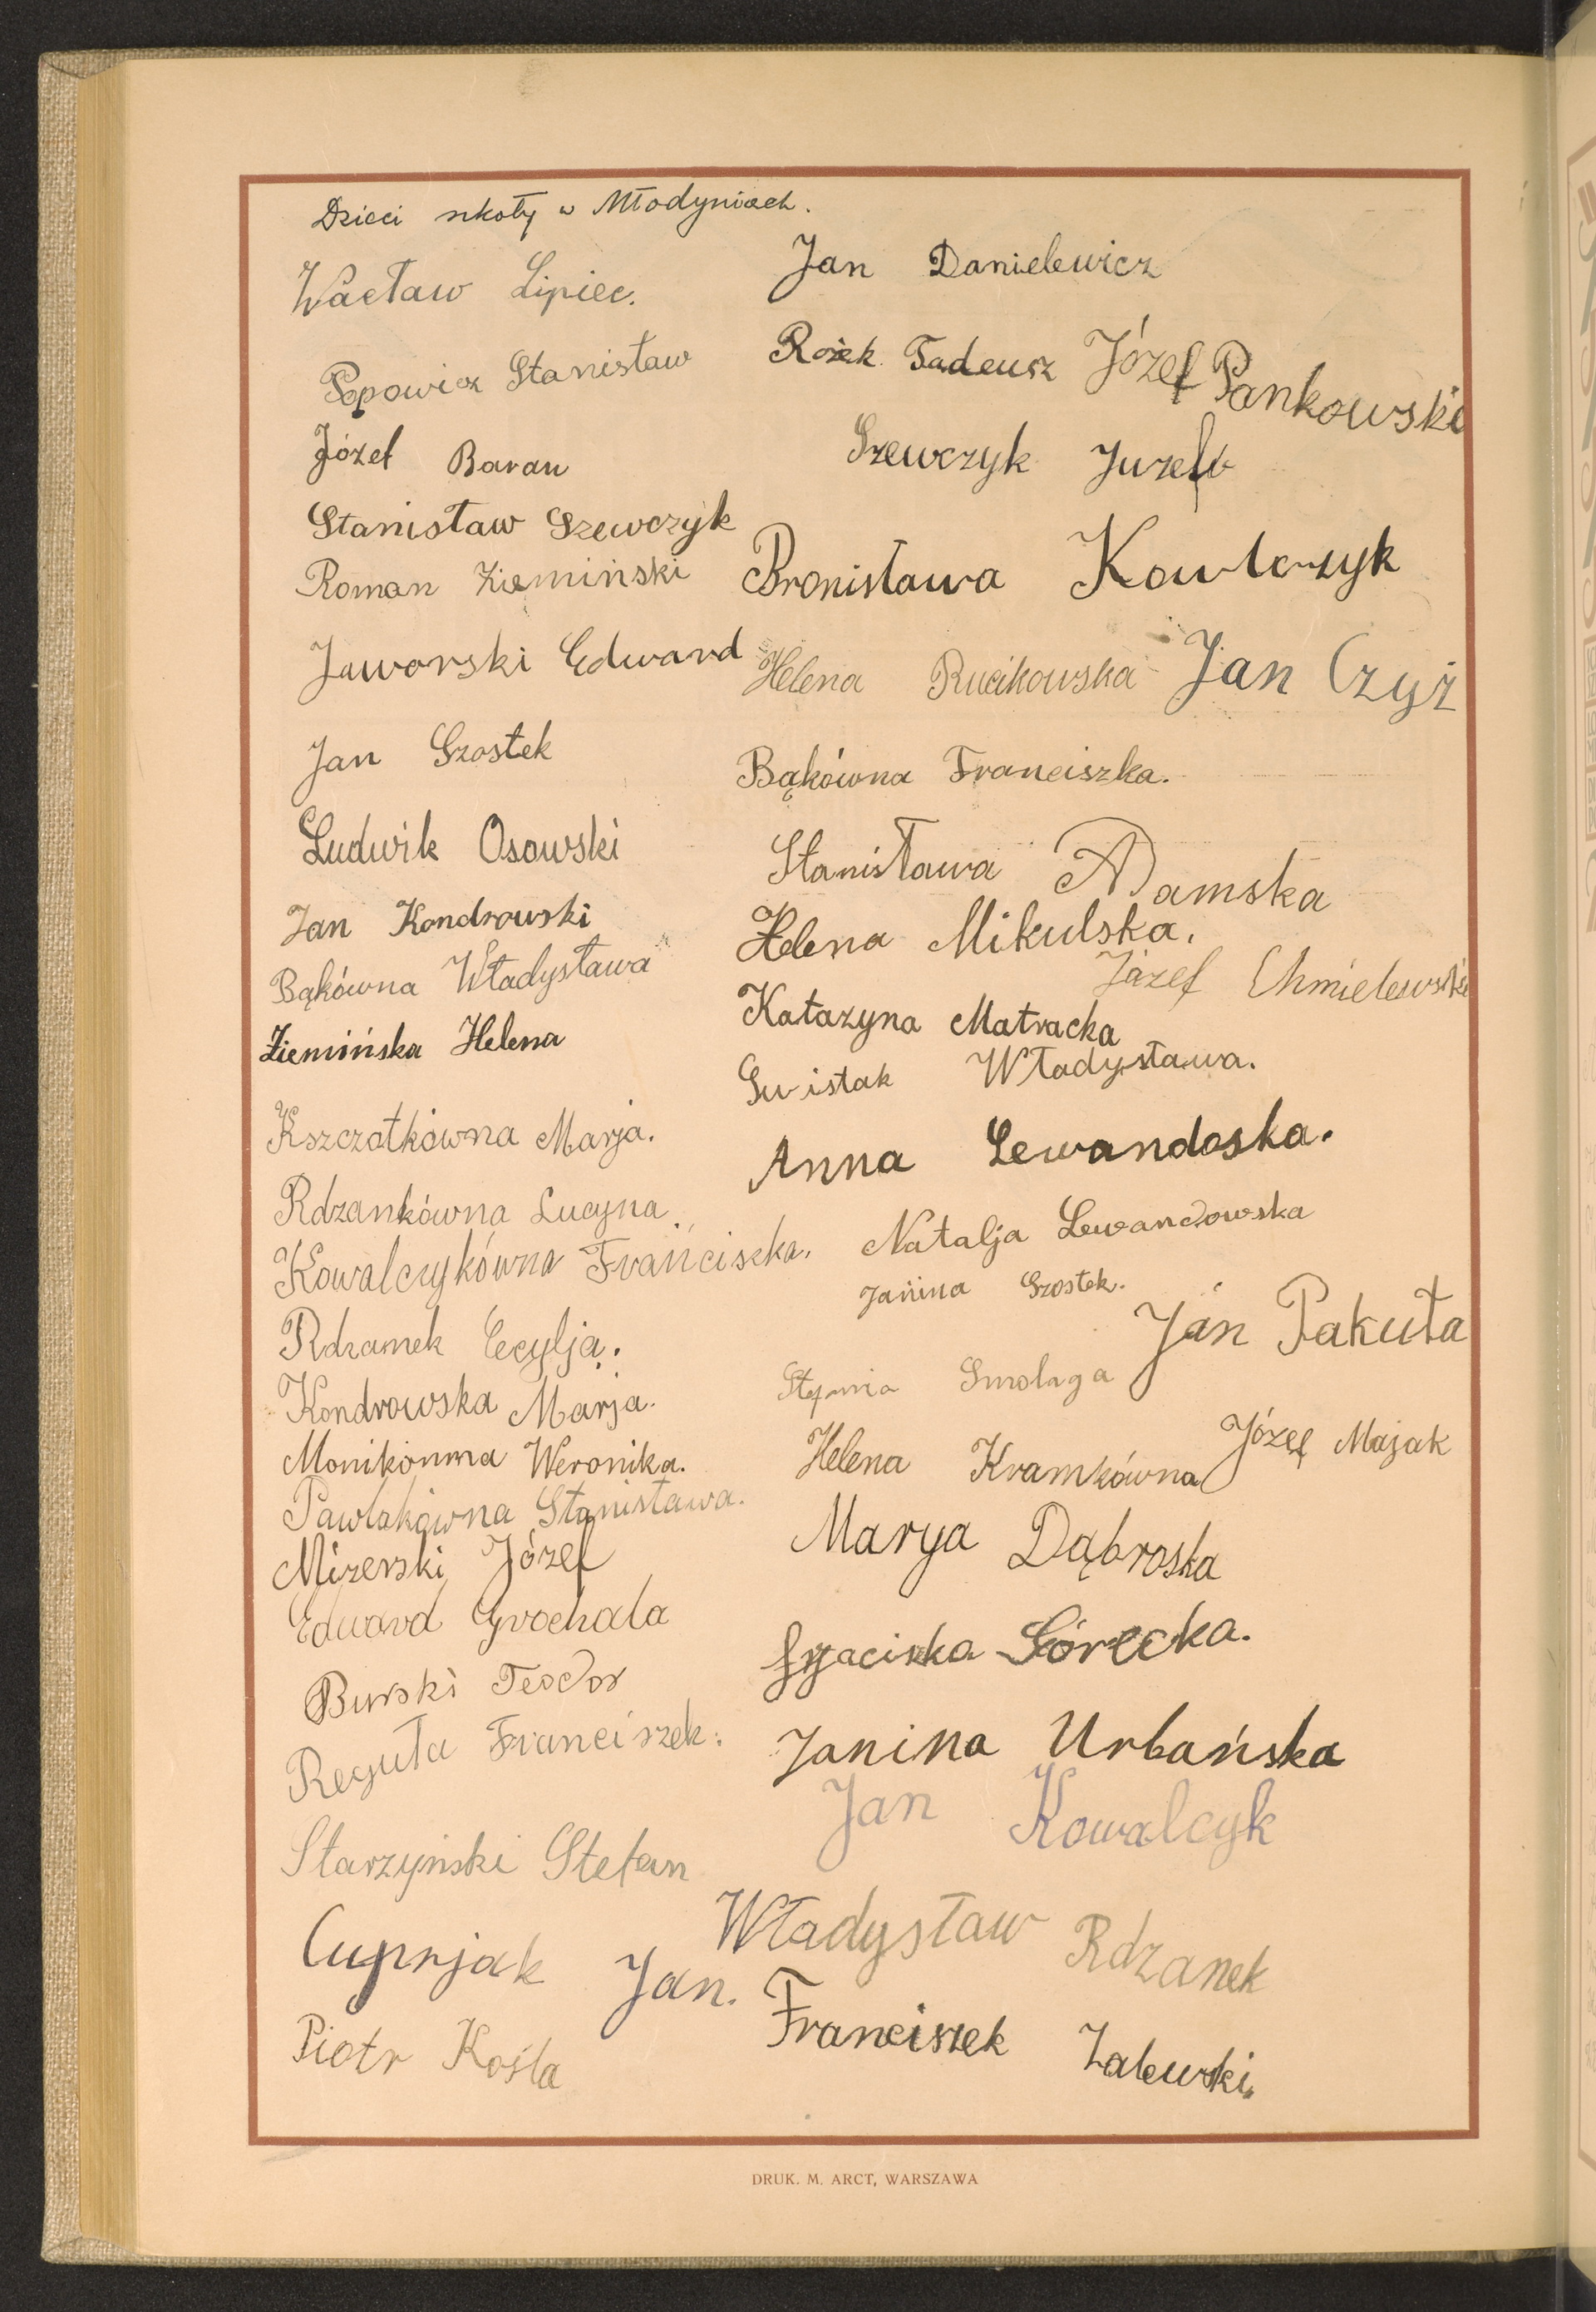 Dzieci szkoły w Młodyniach.
Wacław Lipiec.
Popowicz Stanisław
Józef Baran
Stanisław Szewczyk
Roman Ziemiński
Jaworski Edward
Jan Szostek
Ludwik Osowski
Jan Kondrowski
Bąkówna Władysława
Ziemińska Helena
Kszczotkówna Marja.
Rdzankówna Lucyna.
Kowalczykówna Franciszka.
Rdzanek Cecylja.
Kondrowska Marja.
Monikowna Weronika.
Pawlakówna Stanisława.
Mizerski Józef
Edward Grochala
Burski Teodor
Reguła Franciszek.
Starzyński Stefan
Cuprjak Jan.
Piotr Kośla
Jan Danielewicz
Rożek Tadeusz
Józef Pankowski
Szewczyk Juzef
Bronisława Kowlczyk
Helena Rucikowska
Jan Czyż
Bąkówna Franciszka.
Stanisława Adamska
Helena Mikulska.
Józef Chmielewski
Katazyna Matracka
Swistak Władysława.
Anna Lewandoska.
Natalja Lewandowska
Janina Szostek.
Jan Pakuła
Smolaga
Helena Kramkówna
Józef Majak
Marya Dąbroska
Górecka.
Janina Urbańska
Jan Kowalcyk
Władysław Rdzanek
Franciszek Zalewski.
DRUK. M. ARCT, WARSZAWA